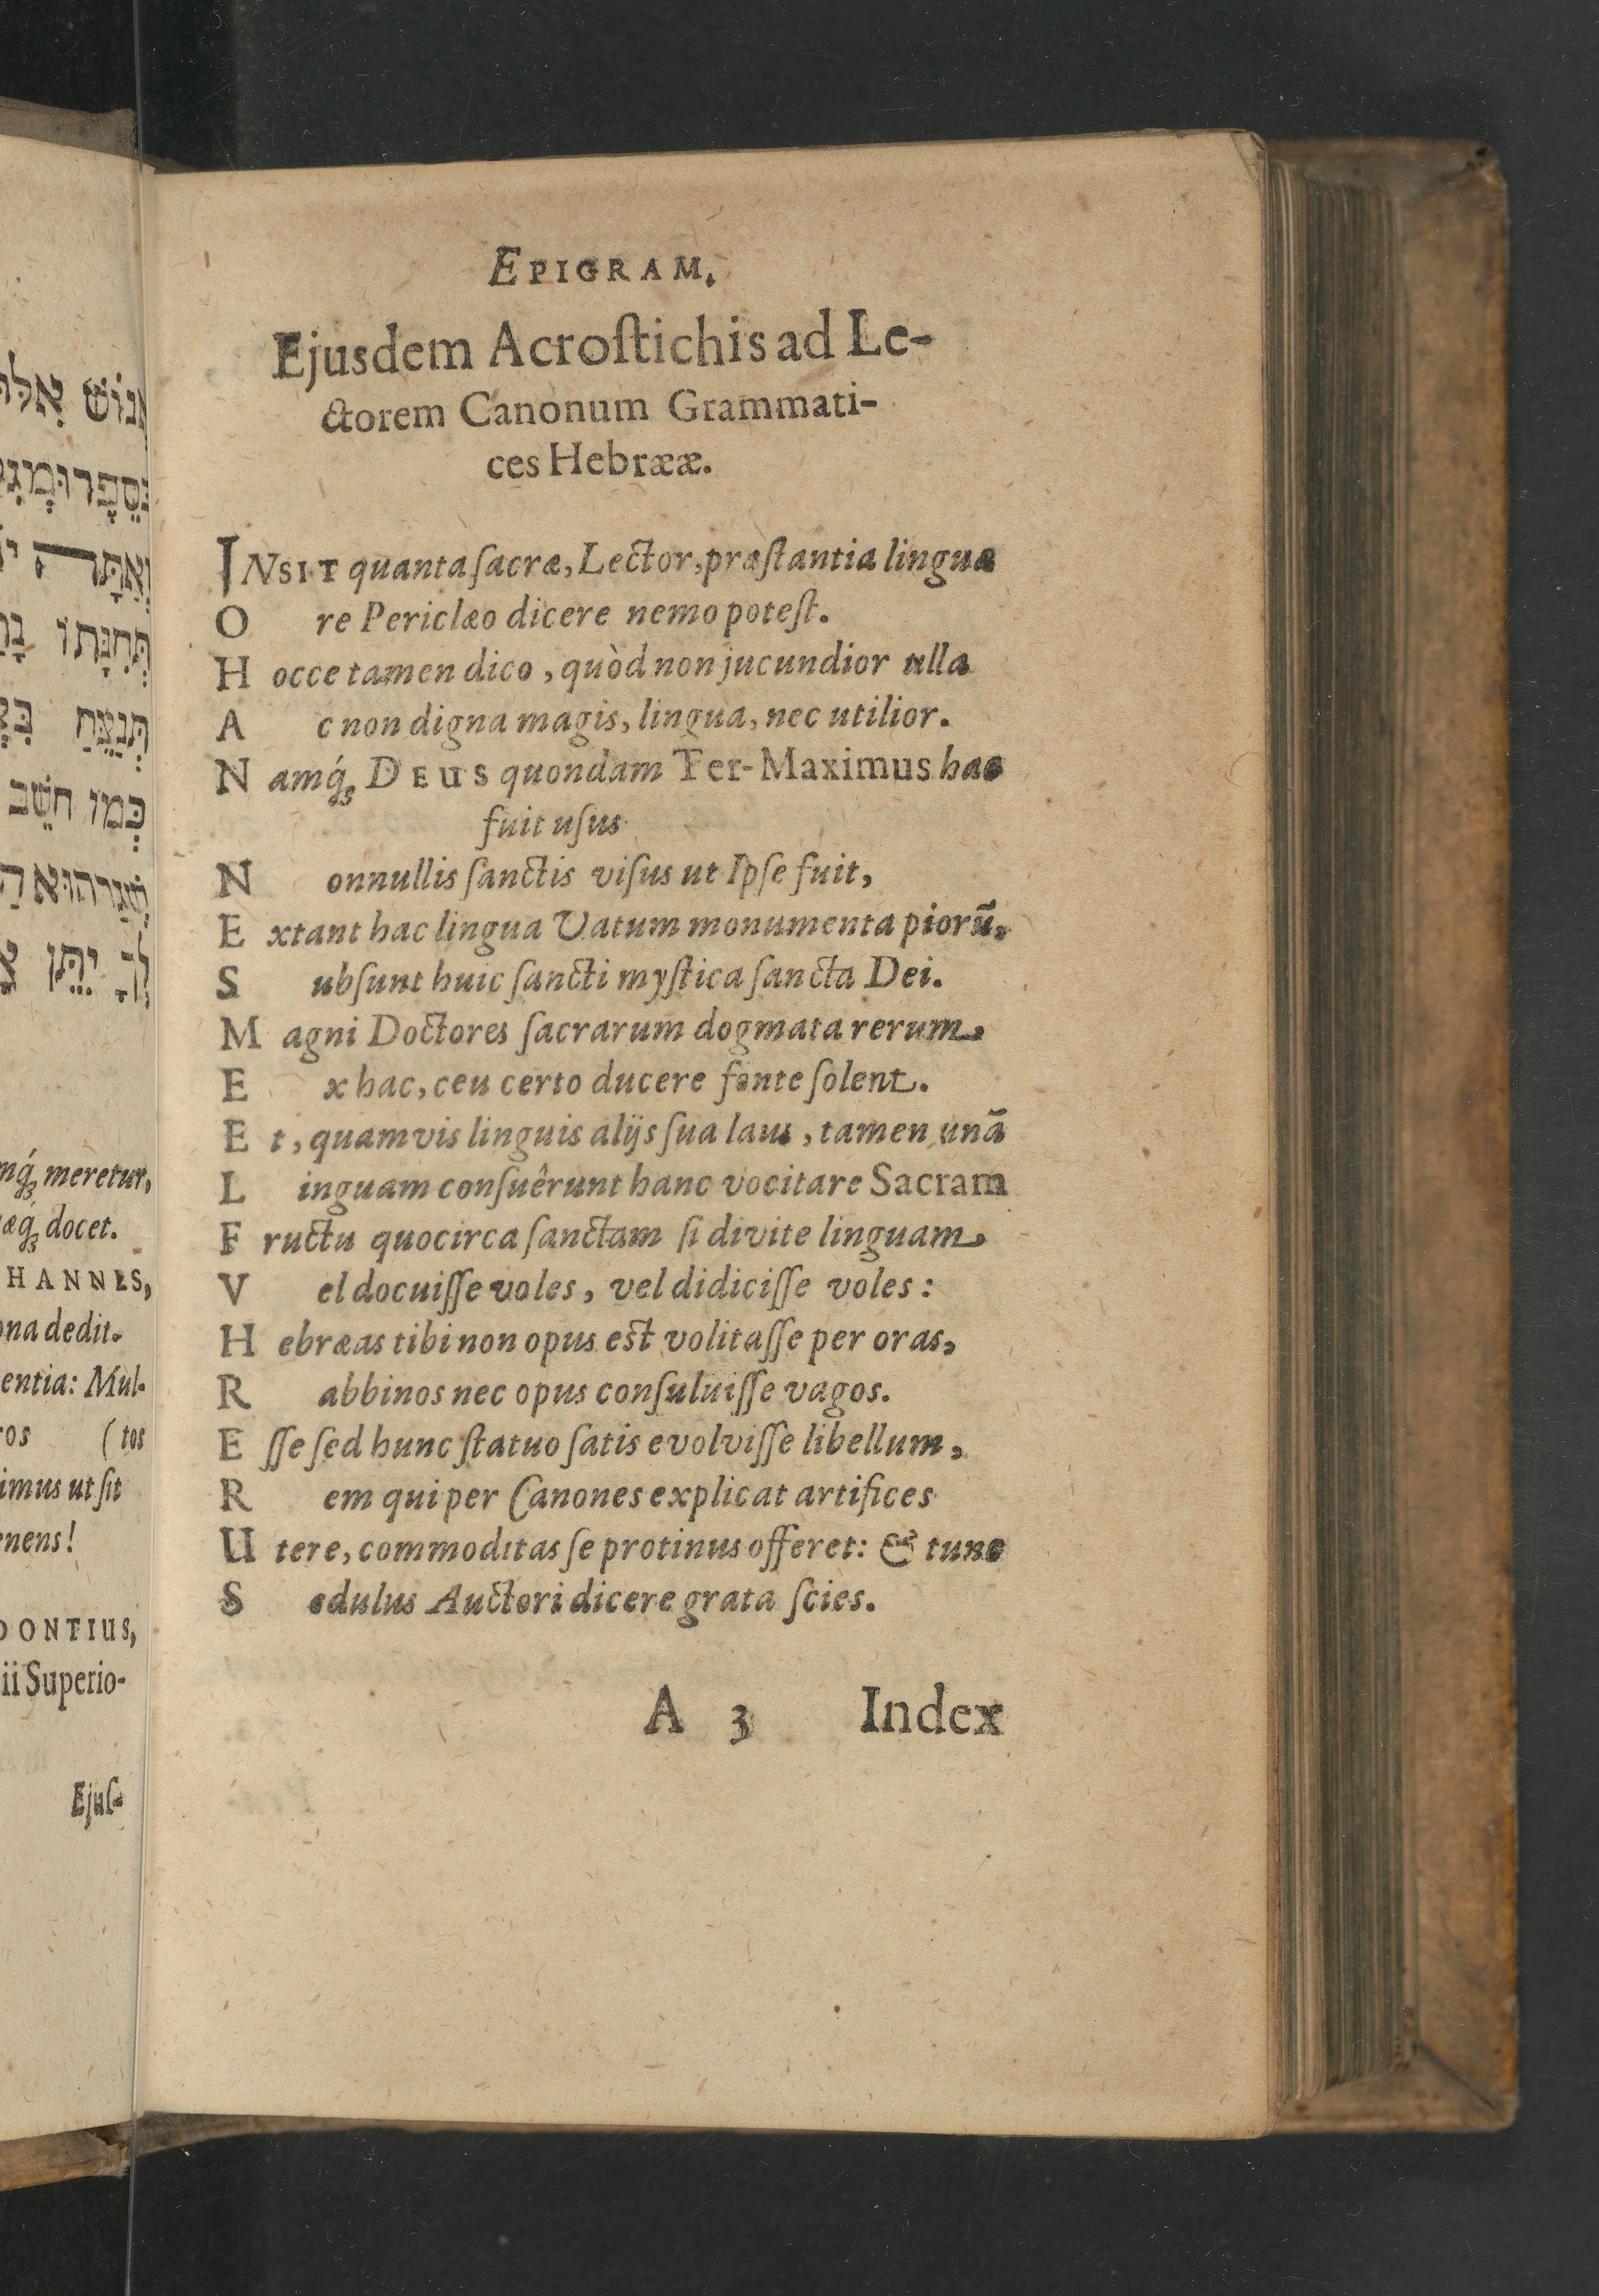 אנוש
תחנתו
תנצח
כמו חשב
לך יתן
meretur,
docet.
HANNES,
dedit.
entia: Mul-
( tos
imus ut ſit
enens!
DONTIUS,
ii Superio-
Ejuſ-
EPIGRAM.
Ejusdem Acroſtichis ad Le-
ctorem Canonum Grammati-
ces Hebrææ.
INSIT quanta ſacræ, Lector, præſtantia linguæ
O re Periclæo dicere nemo poteſt.
H occe tamen dico, quòd non jucundior ulla
A c non digna magis, lingua, nec utilior.
N amq́; DEUS quondam Ter-Maximus hac
fuit uſus
N onnullis ſanctis viſus ut Ipſe fuit,
E xtant hac lingua Vatum monumenta piorũ.
S ubſunt huic ſancti myſtica ſancta Dei.
M agni Doctores ſacrarum dogmata rerum,
E x hac, ceu certo ducere fonte ſolent.
E t, quamvis linguis alijs ſua laus, tamen unã
L inguam conſuêrunt hanc vocitare Sacram
F ructu quocirca ſanctam ſi divite linguam,
V el docuiſſe voles, vel didiciſſe voles:
H ebræas tibi non opus est volitaſſe per oras,
R abbinos nec opus conſuluiſſe vagos.
E ſſe ſed hunc ſtatuo ſatis evolviſſe libellum,
R em qui per Canones explicat artifices
U tere, commoditas ſe protinus offeret: & tunc
S edulus Auctori dicere grata ſcies.
A 3 Index